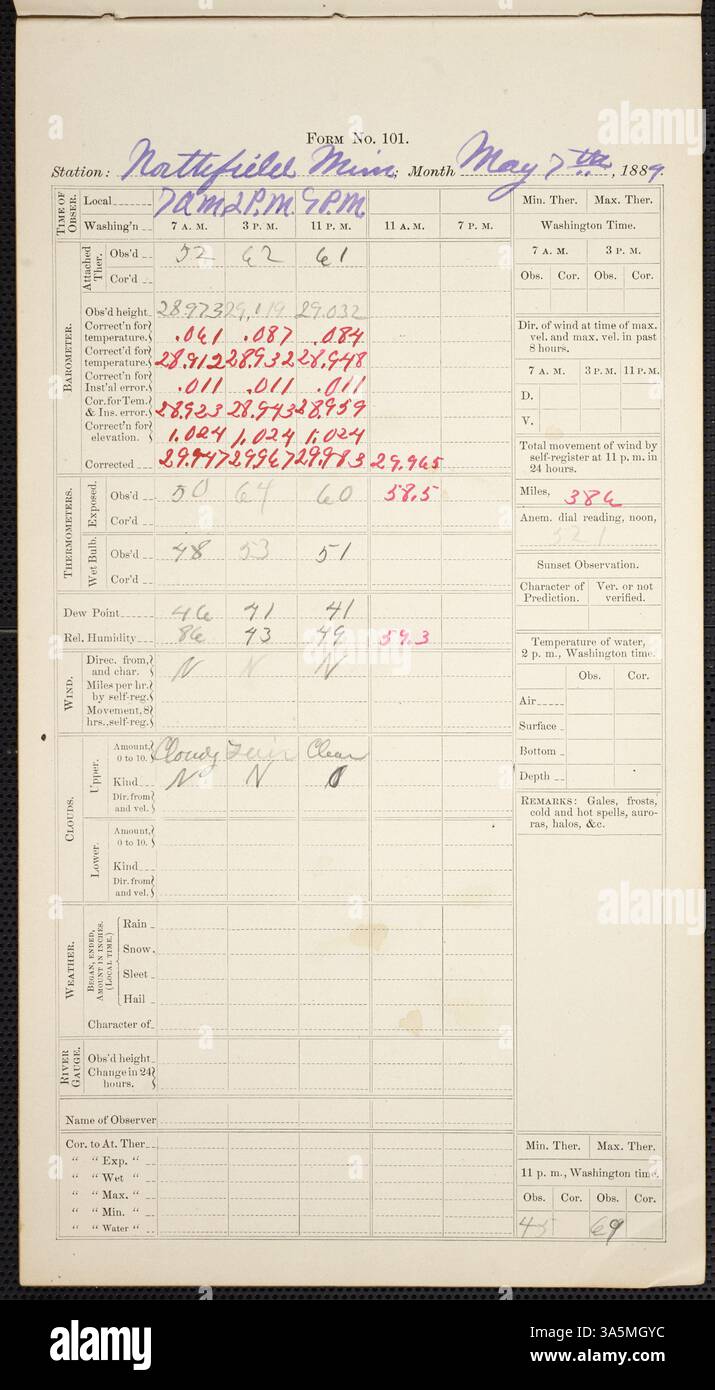 FORM No. 101.
Station: Northfield Minn; Month May 7th, 1889.
TIME OF OBSER.
Local 7 a m. 2 P.M. 9 P.M.
Washing'n 7 A. M. 3 P. M. 11 P. M. 11 A. M. 7 P. M.
BAROMETER.
Attached Ther.
Obs'd 52 62 61
Cor'd
Obs'd height 28.973 29.119 29.032
Correct'n for temperature. .061 .087 .084
Correct'd for temperature. 28.912 28.932 28.948
Correct'n for Inst'al error. .011 .011 .011
Cor. for Tem. & Ins. error. 28.923 28.943 28.959
Correct'n for elevation. 1.024 1.024 1.024
Corrected 29.947 29.967 29.983 29.965
THERMOMETERS.
Exposed.
Obs'd 50 64 60 58.5
Cor'd
Wet Bulb.
Obs'd 48 53 51
Cor'd
Dew Point 46 41 41
Rel. Humidity 86 43 49 59.3
WIND.
Direc. from, and char. N N N
Miles per hr. by self-reg.
Movement, 8 hrs., self-reg.
CLOUDS.
Upper.
Amount, 0 to 10. Cloudy Fair Clear
Kind N N 0
Dir. from and vel.
Lower.
Amount, 0 to 10.
Kind
Dir. from and vel.
WEATHER.
BEGAN, ENDED, AMOUNT IN INCHES. (LOCAL TIME.)
Rain
Snow
Sleet
Hail
Character of
RIVER GAUGE.
Obs'd height
Change in 24 hours.
Name of Observer
Cor. to At. Ther.
" " Exp. "
" " Wet "
" " Max. "
" " Min. "
" " Water "
Min. Ther. Max. Ther.
Washington Time.
7 A. M. 3 P. M.
Obs. Cor. Obs. Cor.
Dir. of wind at time of max. vel. and max. vel. in past 8 hours.
7 A. M. 3 P.M. 11 P.M.
D.
V.
Total movement of wind by self-register at 11 p. m. in 24 hours.
Miles, 386
Anem. dial reading, noon,
521
Sunset Observation.
Character of Prediction. Ver. or not verified.
Temperature of water, 2 p. m., Washington time.
Obs. Cor.
Air
Surface
Bottom
Depth
REMARKS: Gales, frosts, cold and hot spells, auroras, halos, &c.
Min. Ther. Max. Ther.
11 p. m., Washington time.
Obs. Cor. Obs. Cor.
45 69
alamy
Image ID: 3A5MGYC
www.alamy.com